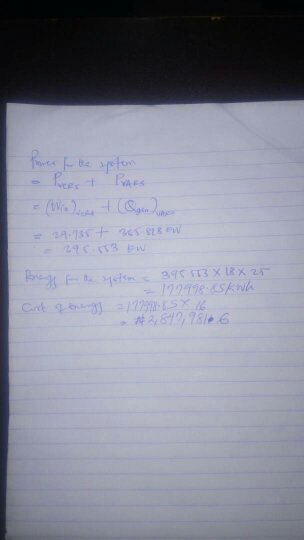 Power for the system
= P_VCRS + P_VARS
= (Win)_VCRS + (Qgen)_VARS
= 29.735 + 365.818 KW
= 395.553 KW
Energy for the system = 395.553 X 18 X 25
= 177998.85 KWh
Cost of Energy = 177998.85 X 16
= #2,847,981.6